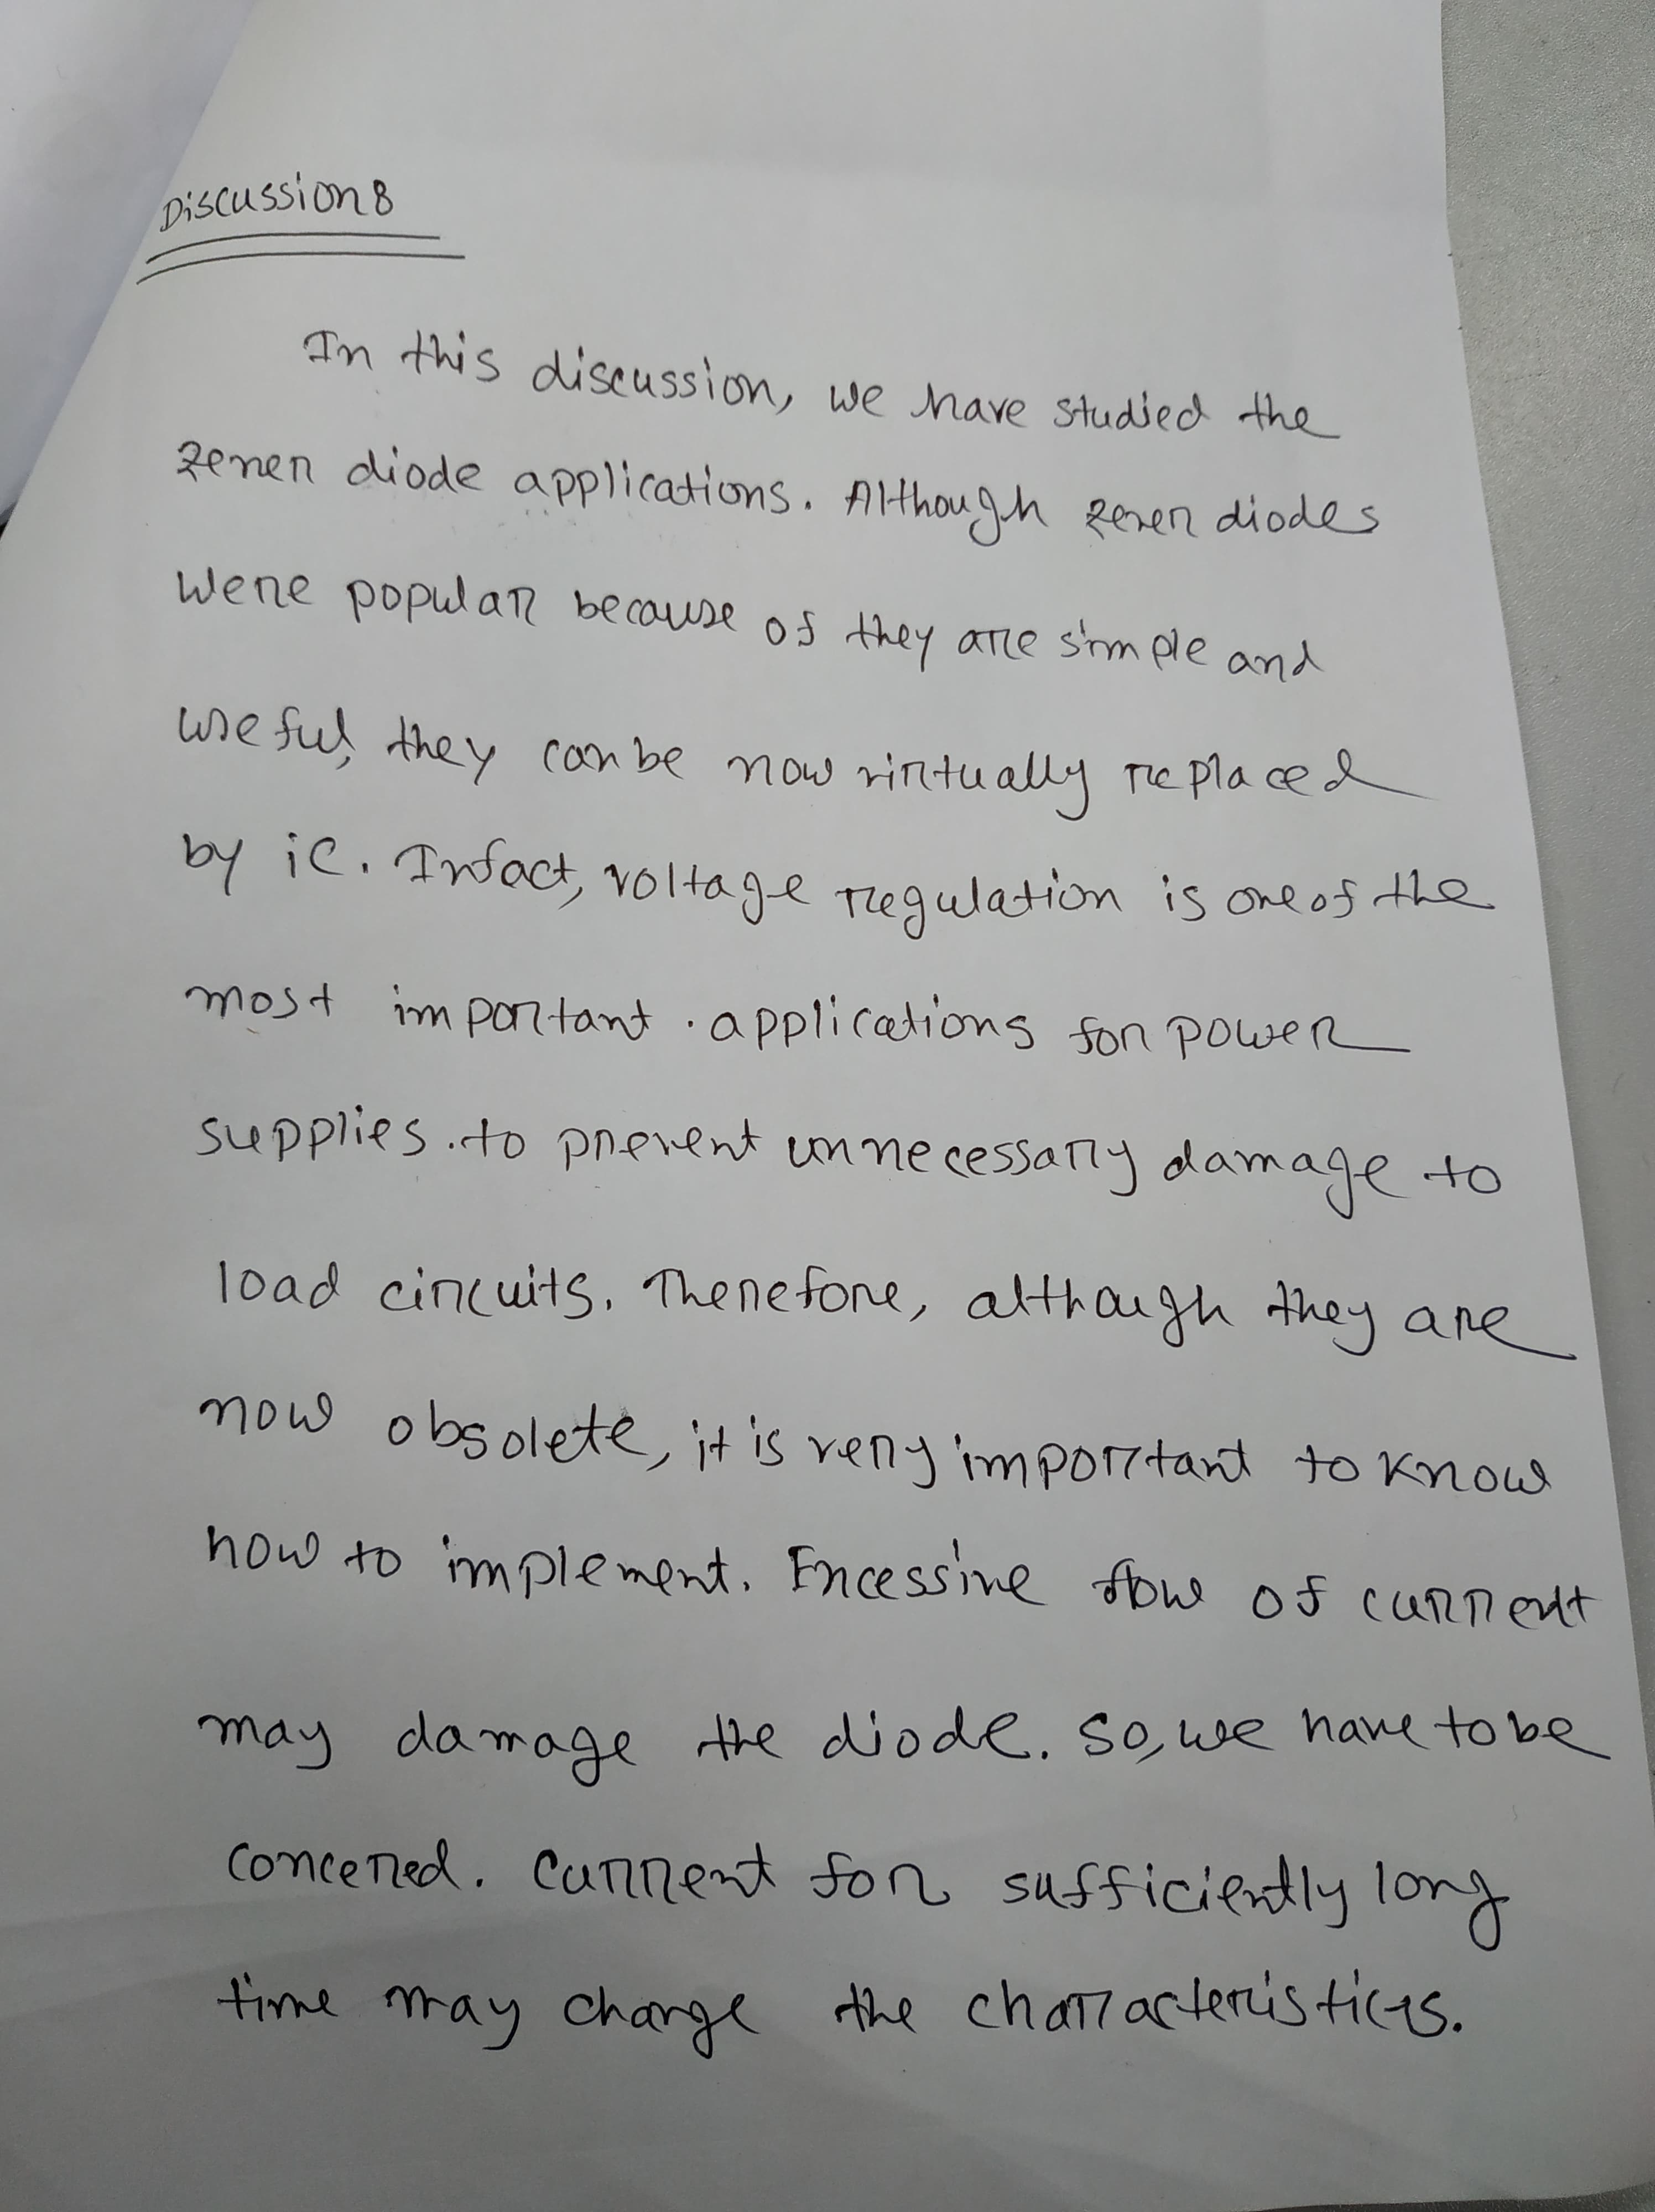 Discussion:
In this discussion, we have studied the
zener diode applications. Although zener diodes
were popular because of they are simple and
useful, they can be now virtually replaced
by ic. Infact, voltage regulation is one of the
most important . applications for power
supplies. to prevent unnecessary damage to
load circuits. Therefore, although they are
now obsolete, it is very important to know
how to implement. Excessive flow of current
may damage the diode. So, we have to be
concered. Current for sufficiently long
time may change the characteristics.